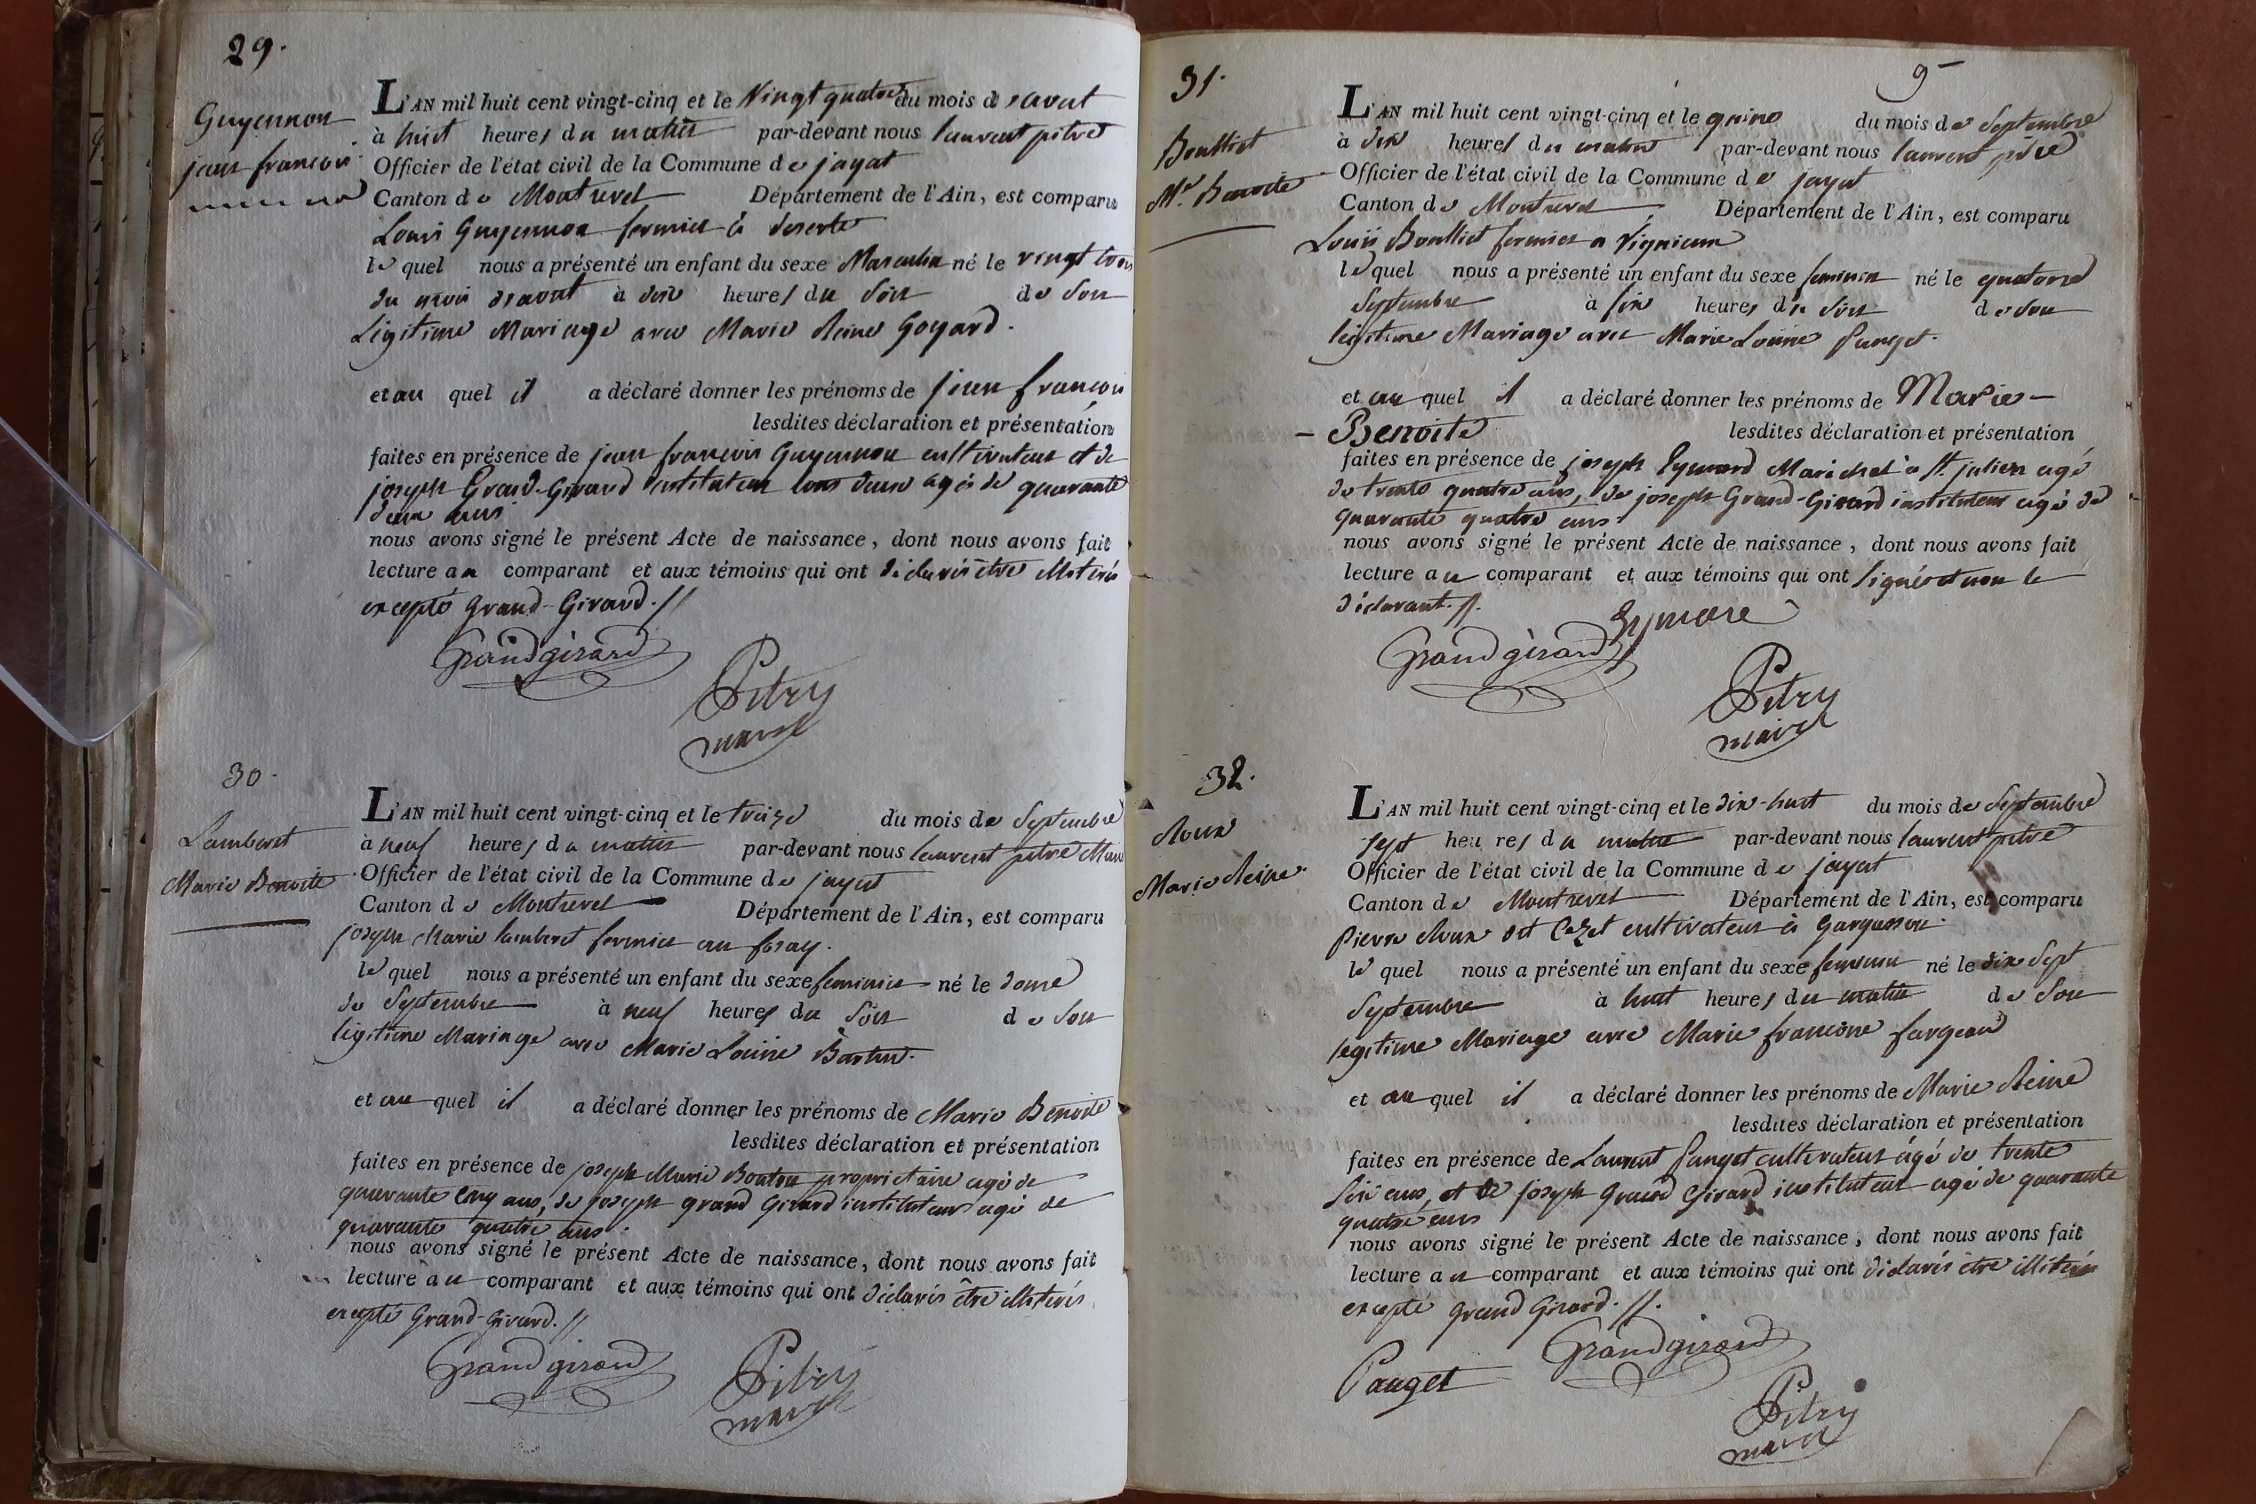 29.
Guyennon
jean françois
L'AN mil huit cent vingt-cinq et le Vingt quatre du mois d
à huit heures du matin par-devant nous laurent pitre
Officier de l'état civil de la Commune de jayat
Canton de Montrevel Département de l'Ain, est comparu
Louis Guyennon fermier à deserte
le quel nous a présenté un enfant du sexe Masculin né le vingt trois
du mois à heures du Soir de Son
Légitime Mariage avec Marie Reine Goyard.
et au quel il a déclaré donner les prénoms de jean françois
lesdites déclaration et présentation
faites en présence de jean françois Guyennon cultivateur et de
joseph Grand-Girard instituteur tous deux agés de quarante
deux ans
nous avons signé le présent Acte de naissance, dont nous avons fait
lecture au comparant et aux témoins qui ont déclarés être illiterés
excepté Grand-Girard. //
Grandgirard
Pitry
maire
30.
Lamberet
Marie Benoite
L'AN mil huit cent vingt-cinq et le treize du mois de Septembre
à neuf heures du matin par-devant nous laurent pitre Maire
Officier de l'état civil de la Commune de jayat
Canton de Montrevel Département de l'Ain, est comparu
joseph Marie lamberet fermier au foray.
le quel nous a présenté un enfant du sexe feminin né le douze
de Septembre à neuf heures du Soir de Son
légitime Mariage avec Marie Louise
et au quel il a déclaré donner les prénoms de Marie Benoite
lesdites déclaration et présentation
faites en présence de joseph Marie Bouton proprietaire agé de
quarante cinq ans, de joseph grand Girard instituteur agé de
quarante quatre ans.
nous avons signé le présent Acte de naissance, dont nous avons fait
lecture au comparant et aux témoins qui ont déclarés être illiterés
excepté Grand-Girard. //
Grandgirard
Pitry
maire
9
31.
Boulliet
Mie. Benoite
L'AN mil huit cent vingt-cinq et le quinze du mois de Septembre
à dix heures du matin par-devant nous laurent pitre
Officier de l'état civil de la Commune de jayat
Canton de Montrevel Département de l'Ain, est comparu
Louis Boulliet fermier a
le quel nous a présenté un enfant du sexe feminin né le quatorze
Septembre à six heures du Soir de Son
légitime Mariage avec Marie Louise Panget.
et au quel il a déclaré donner les prénoms de Marie-
- Benoite lesdites déclaration et présentation
faites en présence de joseph Eymard Maréchal à St. julien agé
de trente quatre ans, de joseph Grand-Girard instituteur agé de
quarante quatre ans
nous avons signé le présent Acte de naissance, dont nous avons fait
lecture au comparant et aux témoins qui ont Signés et non le
déclarant. //.
Grandgirard
Pitry
maire
32.
Roux
Marie Reine.
L'AN mil huit cent vingt-cinq et le dix-huit du mois de Septembre
sept heures du matin par-devant nous laurent pitre
Officier de l'état civil de la Commune de jayat
Canton de Montrevel Département de l'Ain, est comparu
Pierre Roux dit cultivateur à
le quel nous a présenté un enfant du sexe feminin né le dix Sept
Septembre à huit heures du matin de Son
legitime Mariage avec Marie françoise fargeau
et au quel il a déclaré donner les prénoms de Marie Reine
lesdites déclaration et présentation
faites en présence de Laurent Panget cultivateur âgé de trente
Six ans, et de joseph Grand Girard instituteur agé de quarante
quatre ans
nous avons signé le présent Acte de naissance, dont nous avons fait
lecture au comparant et aux témoins qui ont déclarés être illiterés
excepté grand Girard. //.
Grandgirard
Pauget
Pitry
maire